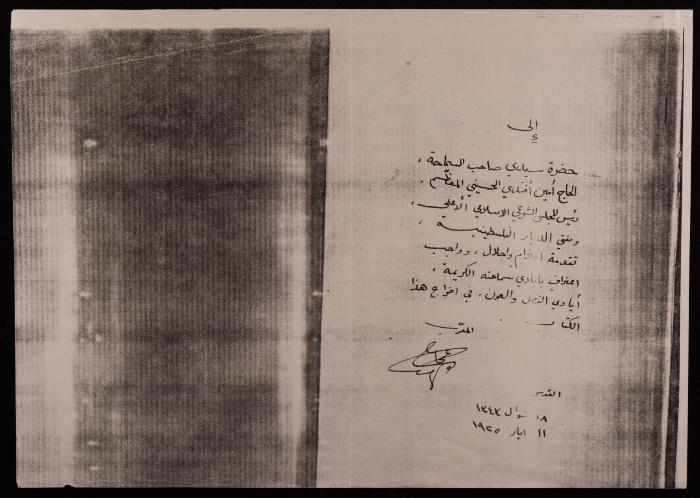 إلى
حضرة سيدي صاحب السماحة ،
الحاج أمين أفندي الحسيني المعظّم ،
رئيس المجلس الشرعي الاسلامي الأعلى ،
ومفتي الديار الفلسطينية ،
تقدمة احترام واجلال ، وواجب
اعتراف بأيادي سماحته الكريمة ،
أيادي الفضل والعون ، في اخراج هذا
الكتاب .
المعرّب
القدس
١٨ شوال ١٣٤٣
١١ ايار ١٩٢٥